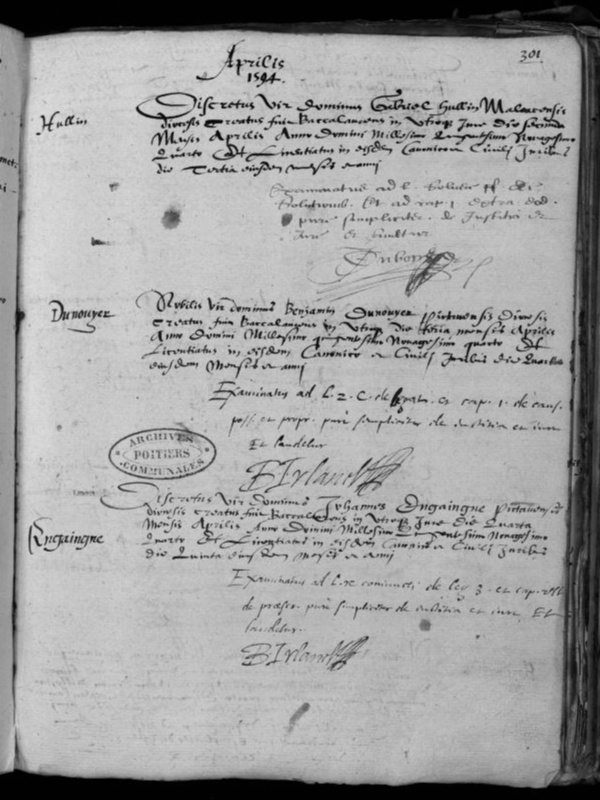 301
Aprilis
1594.
Hullin
Discretus Vir dominus Gabriel Hullin Maleacensis
diocesis Creatus fuit Baccalaureus in Utroq Jure die secunda
Mensis Aprilis Anno Domini Millesimo Quingentesimo Nonagesimo
Quarto Et Licentiatus in eisdem Canonico et Civili Juribus
die Tertia eiusdem mensis et anni
Examinatus ad l.
solutionib. Et ad cap. 1 extra eod.
pure simpliciter de Justitia et
Jure et
Dunouyer
Nobilis Vir dominus Benjamin Dunouyer Pictauensis diocesis
Creatus fuit Baccalaureus in Utroq die tertia mensis Aprilis
Anno Domini Millesimo quingentesimo Nonagesimo quarto Et
Licentiatus in eisdem Canonico et Civili Juribus die Quarta
eiusdem Mensis et anni
Examinatus ad l. 2. C. de et cap. 1. de caus.
poss. et propr. pure simpliciter de iustitia et iure
Et laudetur
BIrland
ARCHIVES
POITIERS
COMMUNALES
Engaingne
Discretus Vir dominus Johannes Engaingne Pictauensis
diocesis Creatus fuit Baccalaureus in Utroq Jure die Quarta
Mensis Aprilis Anno Domini Millesimo Quingentesimo Nonagesimo
Quarto Et Licentiatus in eisdem Canonico et Civili Juribus
die Quinta eiusdem Mensis et anni
Examinatus ad l. re coniuncti de leg 3. et cap.
de praescr. pure simpliciter de iustitia et iure Et
laudetur.
BIrland